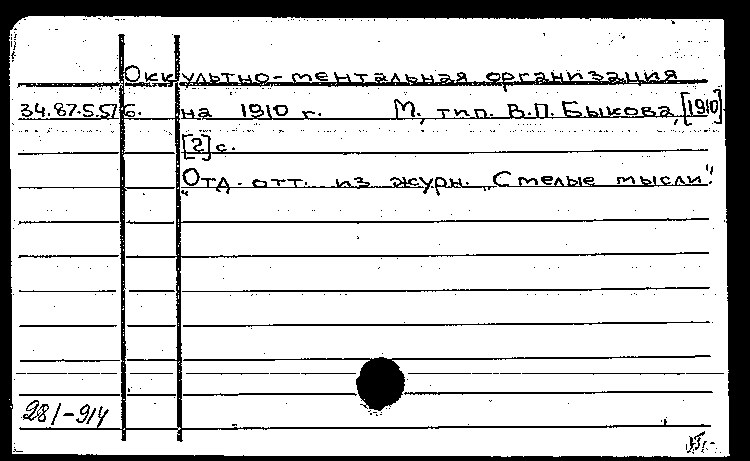 Оккультно-ментальная организация
34.87.5.5/6. на 1910 г. М., тип. В.П. Быкова, [1910].
[2] с.
"Отд. отт. из журн. "Смелые мысли".
281-914